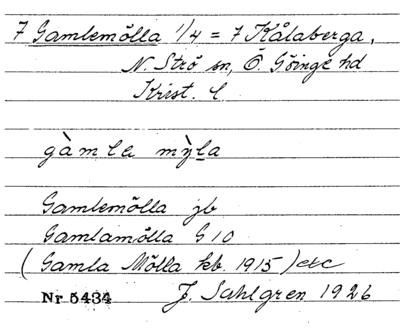 7 Gamlemölla 1/4 = 7 Kålaberga,
N. Strö sn, Ö. Göinge hd
Krist. l
gàmla mỳla
Gamlemölla jb
Gamlamölla G 10
(Gamla Mölla kb. 1915) etc
Nr 5434 J. Sahlgren 1926